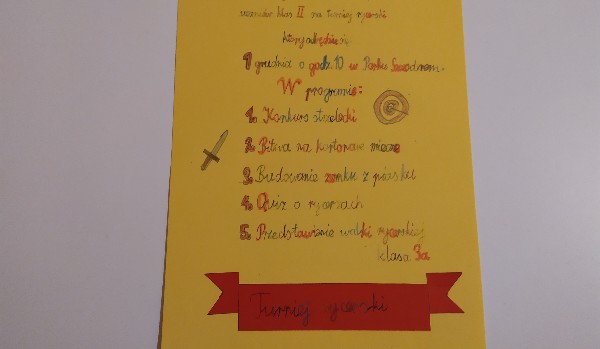 uczniów klas II na turniej rycerski
który odbędzie się
1 grudnia o godz. 10 w Parku
W programie:
1. Konkurs strzelecki
2. Bitwa na kartonowe miecze
3. Budowanie zamku z piasku
4. Quiz o rycerzach
5. Przedstawienie walki rycerskiej
klasa 3a
Turniej rycerski